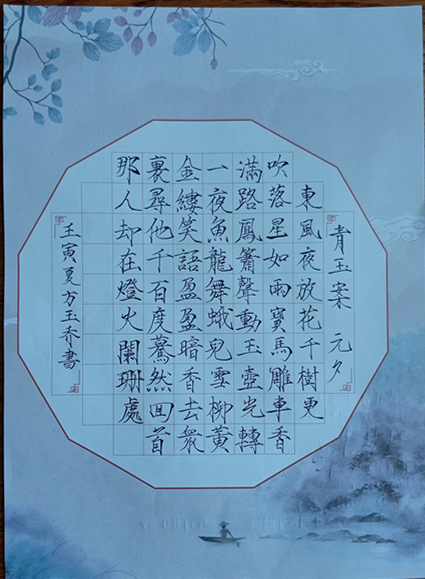 青玉案 元夕
東風夜放花千樹更
吹落星如雨寶馬雕車香
滿路鳳簫聲動玉壺光轉
一夜魚龍舞蛾兒雪柳黃
金縷笑語盈盈暗香去衆
裏尋他千百度驀然回首
那人却在燈火闌珊處
壬寅夏方玉乔書